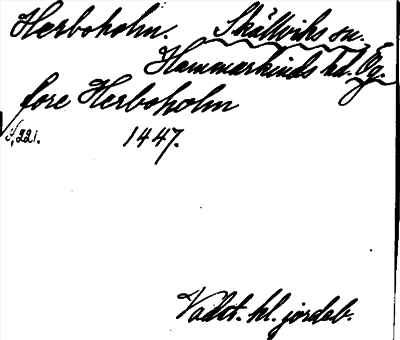 Herboholm. Skällviks sn.
Hammarkinds hd. Ög.
fore Herboholm
221. 1447.
Vadst. kl. jordeb.